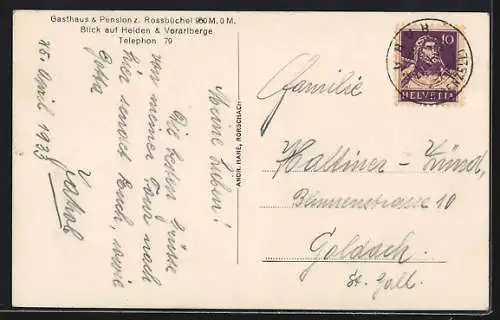 Gasthaus & Pension z. Rossbüchel 960 M. ü M.
Blick auf Heiden & Vorarlberge
Telephon 79
April 1933
Meine Lieben!
Die besten Grüsse
von meiner Tour nach
hier sendet Euch, sowie
ANDR. HANE, RORSCHACH
10
HELVETIA
Familie
Haltiner - Zünd,
Blumenstrasse 10
Goldach.
St. Gall.